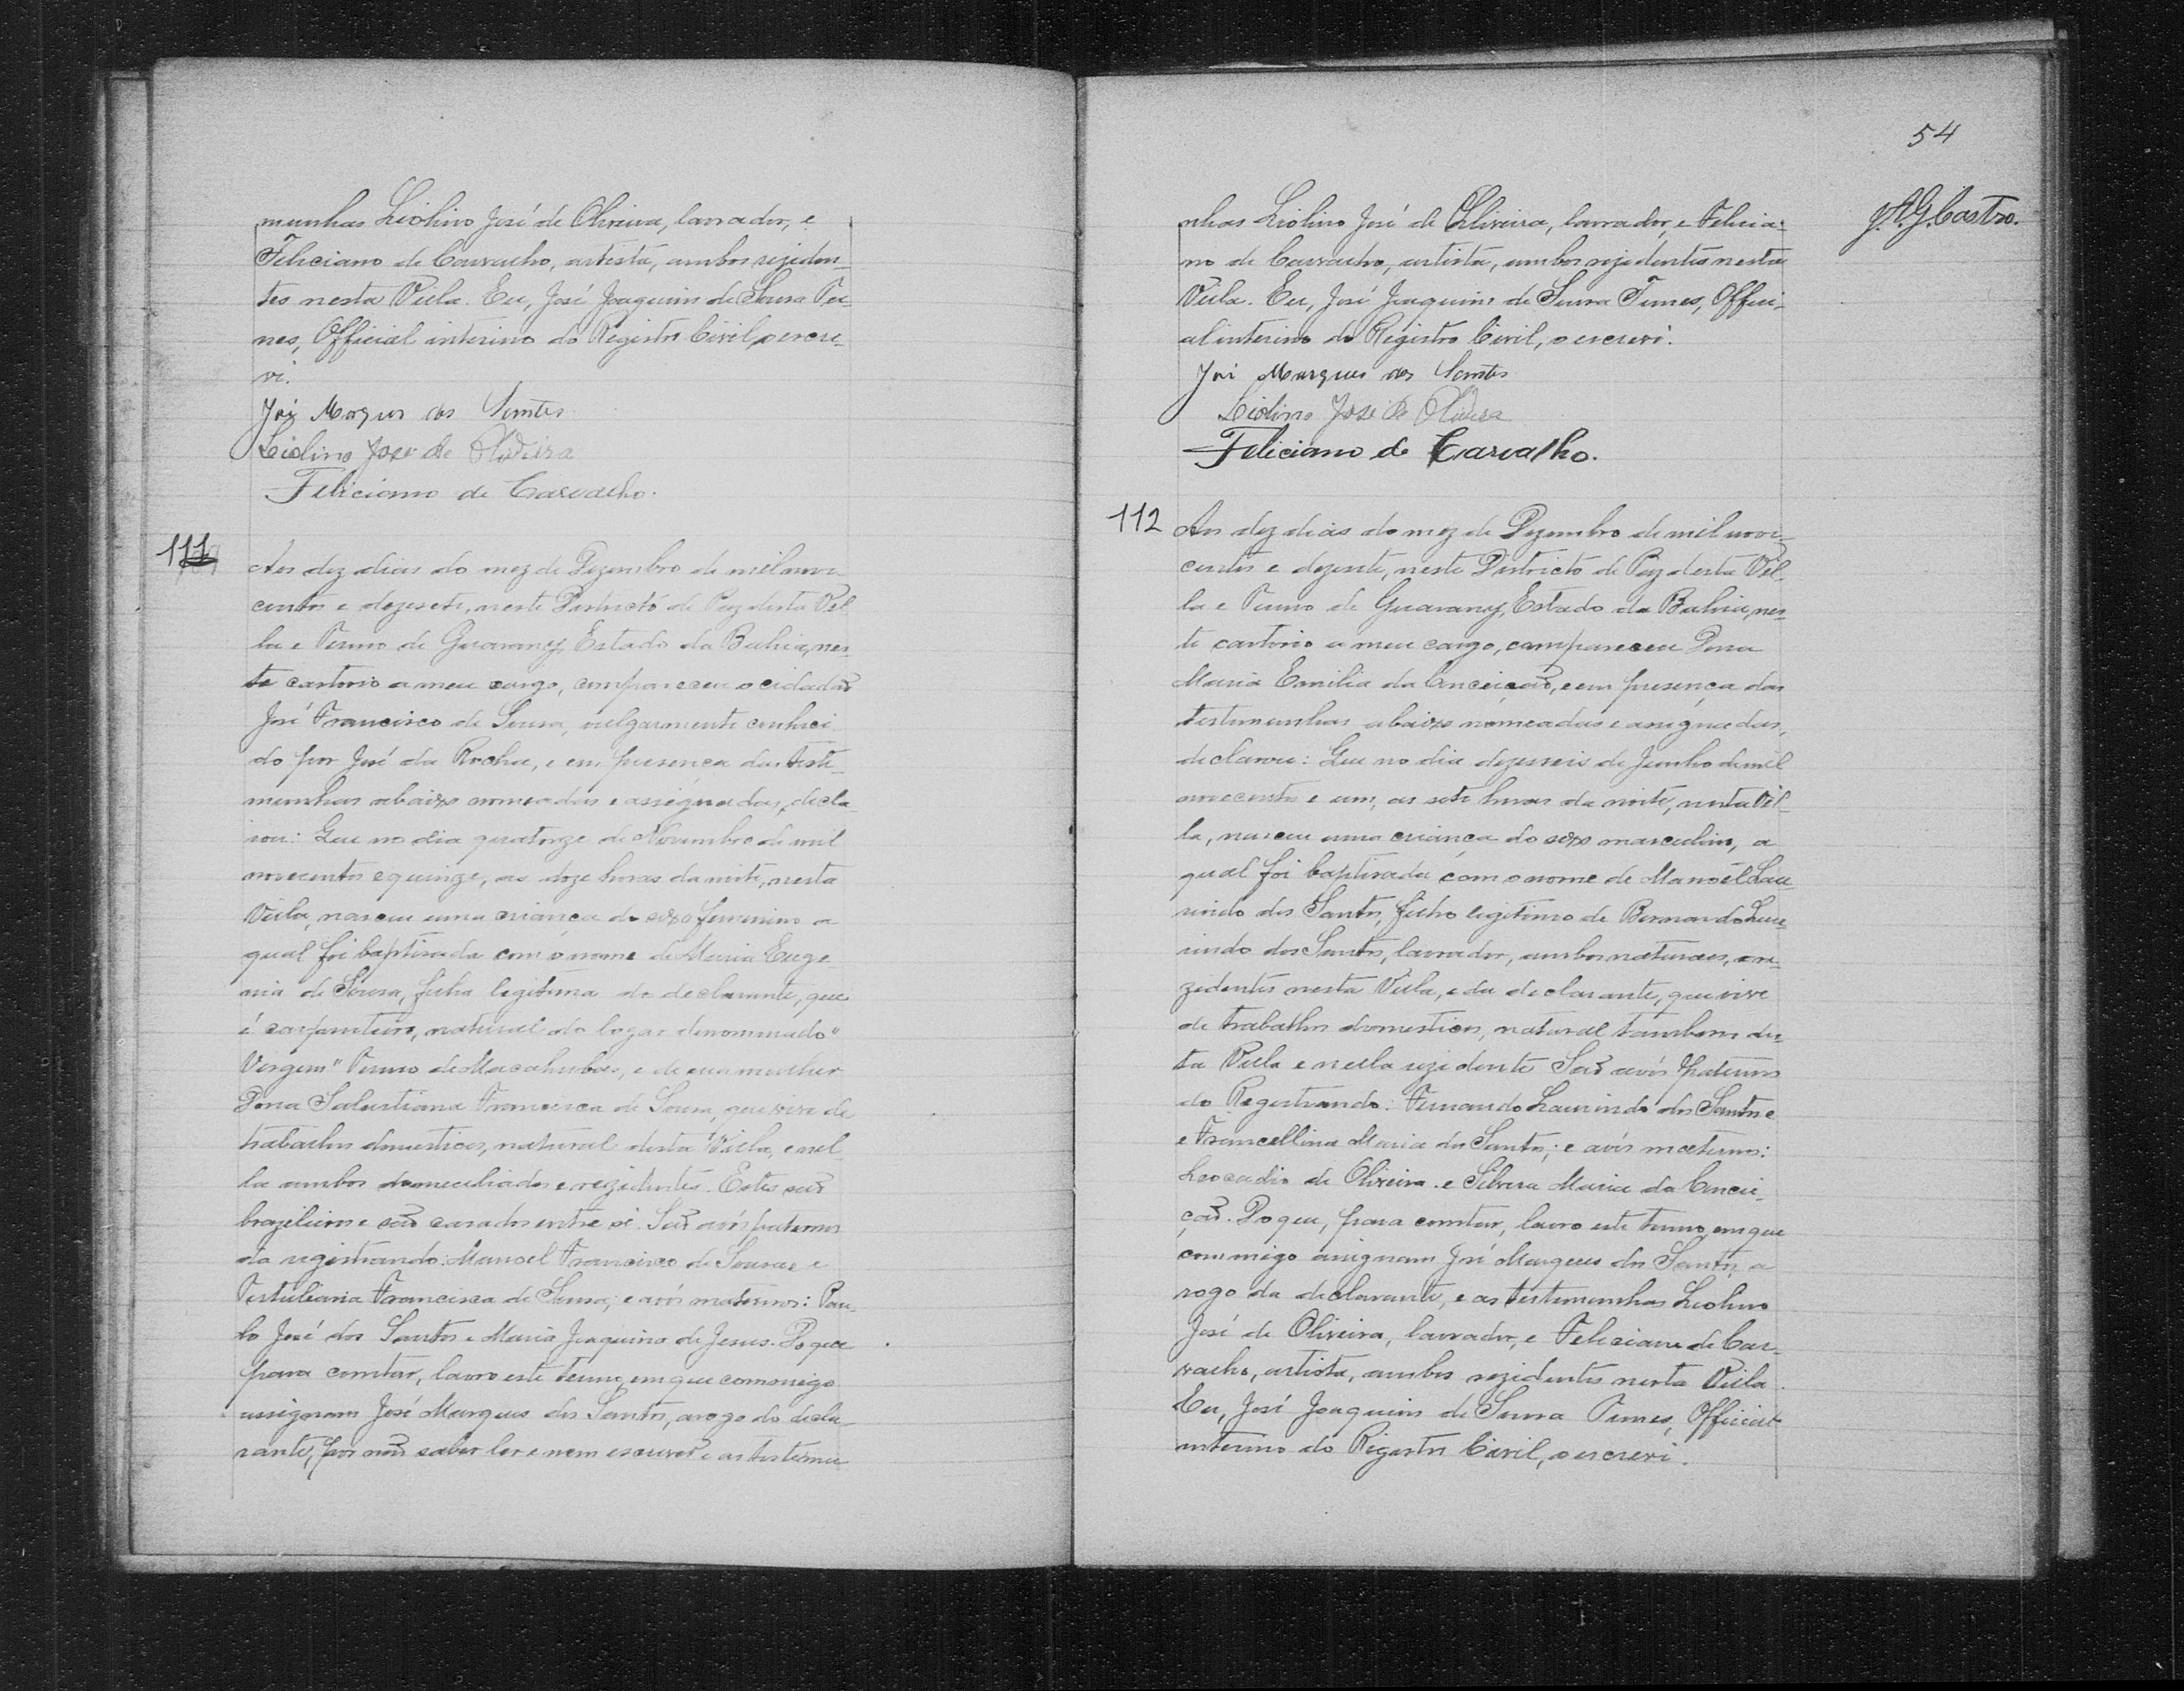 munhas Liolino José de Oliveira, lavrador, e
Feliciano de Carvalho, artista, ambos reziden-
tes nesta Villa. Eu, José Joaquim de Sousa Fu-
nes, Official interino do Registro Civil, o escre-
vi.
José Marques dos Santos
Liolino José de Oliveira
Feliciano de Carvalho.
111
Aos dez dias do mez de Dezembro de mil nove
centos e dezesete, neste Districto de Paz desta Vil
la e Termo de Guarany, Estado da Bahia, nes-
te cartorio a meu cargo, compareceu o cidadão
José Francisco de Sousa, vulgarmente conheci
do por José da Rocha, e em presença das teste-
munhas abaixo nomeadas e assignadas, decla-
rou: Que no dia quatorze de Novembro de mil
novecentos e quinze, as doze horas da noite, nesta
Villa, nasceu uma criança do sexo feminino a
qual foi baptisada com o nome de Maria Euge
nia de Sousa, filha legitima do declarante, que
é carpinteiro, natural do logar denominado "
Vargem" Termo de Macahubas, e de sua mulher
Dona Salustiana Francisca de Sousa, que vive de
trabalhos domesticos, natural desta Villa, e nel
la ambos domiciliados e rezidentes. Estes são
brazileiros e são casados entre si. São avós paternos
da registrando: Manoel Francisco de Sousa e
Francisca de Sousa; e avós maternos: Pau-
lo José dos Santos e Maria Joaquina de Jesus. Do que
para constar, lavro este termo, em que commigo
assignam José Marques dos Santos, a rogo do decla-
rante, por não saber ler e nem escrever e as testemu
54
J.A.G. Castro.
nhas Liolino José de Oliveira, lavrador, e Felicia-
no de Carvalho, artista, ambos rezidentes nesta
Villa. Eu, José Joaquim de Sousa Funes, Offici-
al interino do Registro Civil, o escrevi.
José Marques dos Santos
Liolino José de Oliveira
Feliciano de Carvalho.
112
Aos dez dias do mez de Dezembro de mil nove-
centos e dezesete, neste Districto de Paz desta Vil-
la e Termo de Guarany, Estado da Bahia, nes-
te cartorio a meu cargo, compareceu Dona
Maria Emilia da Conceição, e em presença das
testemunhas abaixo nomeadas e assignadas,
declarou: Que no dia dezesseis de Junho de mil
novecentos e um, as sete horas da noite, nesta Vil-
la, nasceu uma criança do sexo masculino, a
qual foi baptisada com o nome de Manoel Lau-
rindo dos Santos, filho legitimo de Bernardo Lau-
rindo dos Santos, lavrador, ambos naturaes, e re-
zidentes nesta Villa, e da declarante, que vive
de trabalhos domesticos, natural tambem des-
ta Villa e nella rezidente São avós paternos
do Registrando: Fernando Laurindo dos Santos e
e Francellina Maria dos Santos; e avós maternos:
Leocadio de Oliveira e Silvera Maria da Concei-
ção. Do que, para constar, lavro este termo, em que
commigo assignam José Marques dos Santos, a
rogo da declarante, e as testemunhas Liolino
José de Oliveira, lavrador, e Feliciano de Car-
valho, artista, ambos rezidentes nesta Villa.
Eu, José Joaquim de Sousa Funes, Official
interino do Registro Civil, o escrevi.